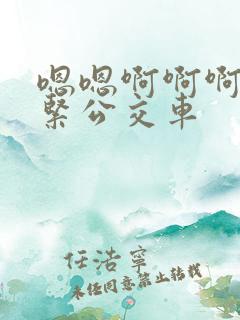 嗯嗯啊啊啊
紧公交车
任浩宁
未经同意禁止转载